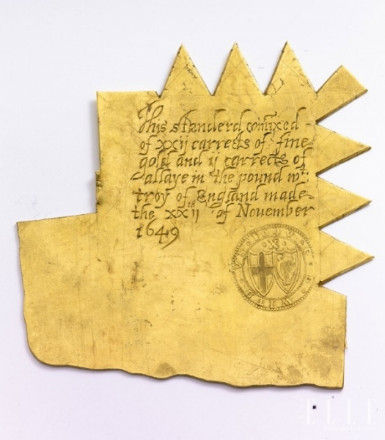 This standerd comixed
of xxij carrects of fine
gold and ij carrects of
allaye in the pound wt
troy of England made
the xxii th of Nouember
1649
ELLE